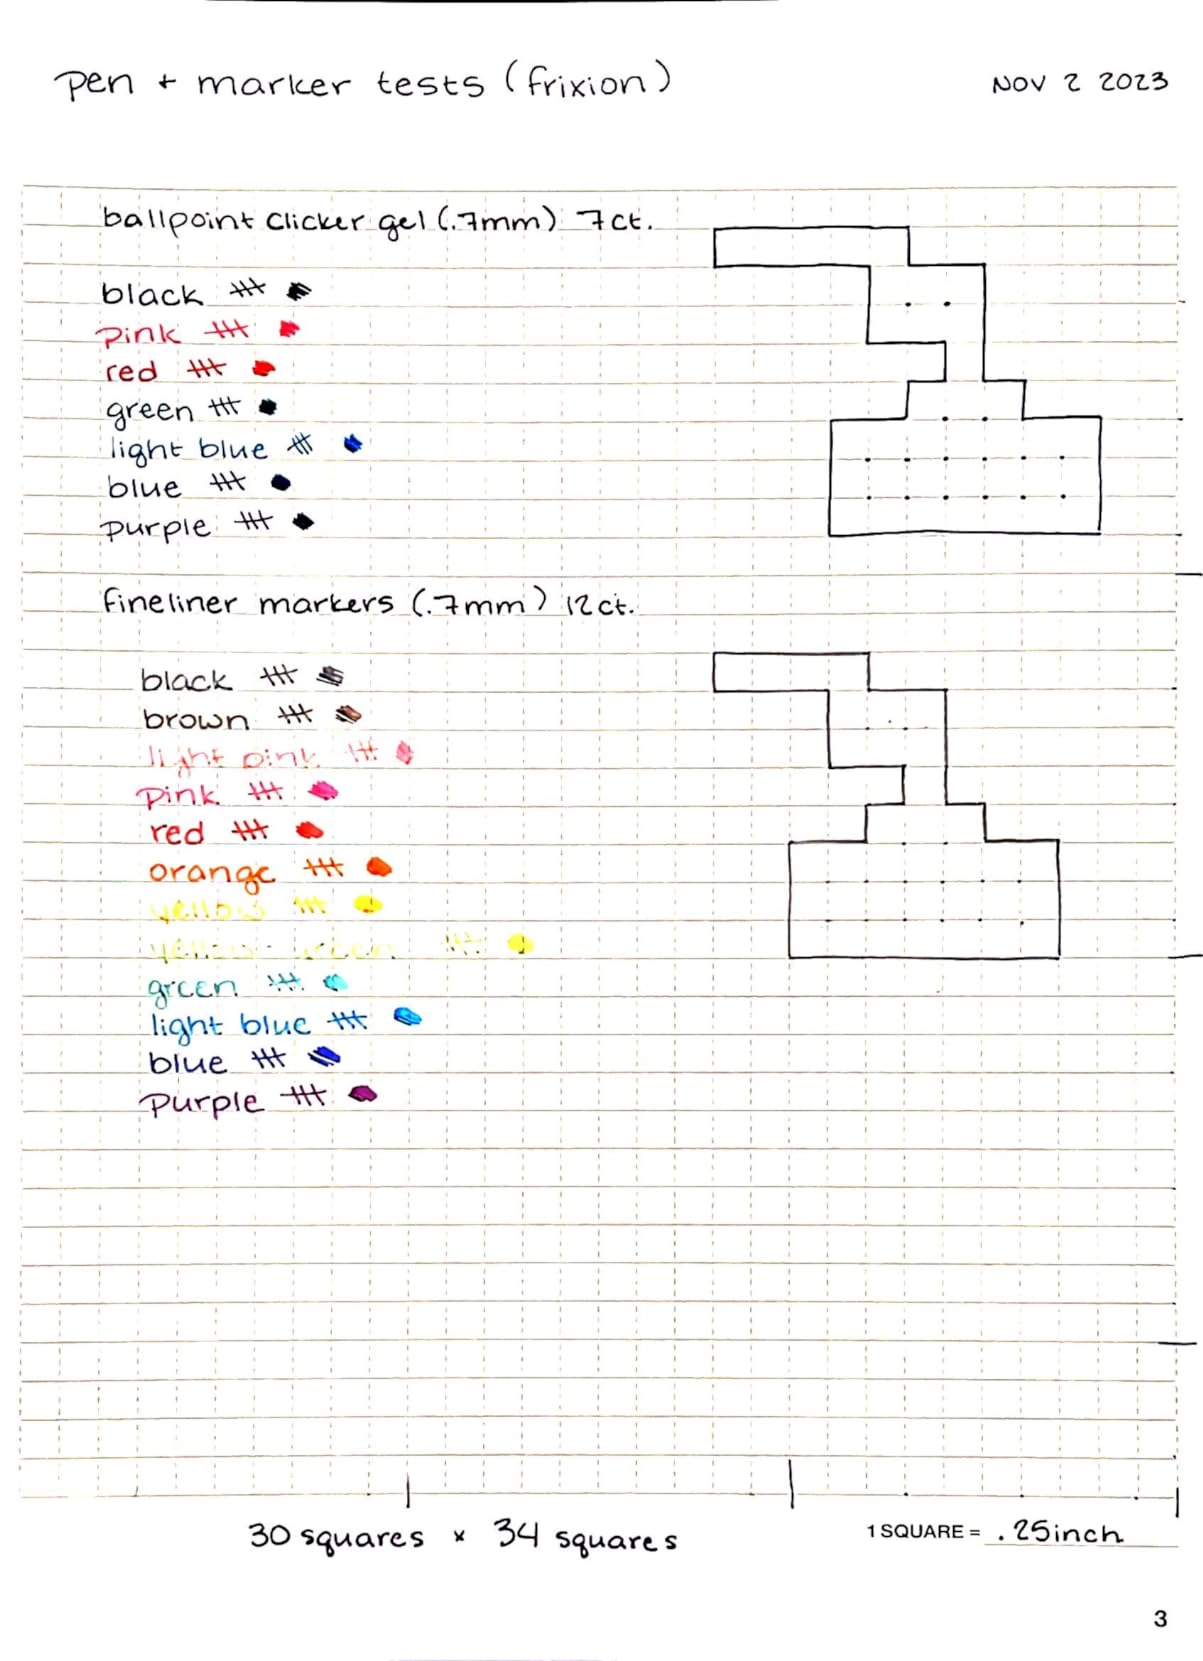 pen + marker tests (frixion)
NOV 2 2023
ballpoint clicker gel (.7mm) 7ct.
black
pink
red
green
light blue
blue
purple
fineliner markers (.7mm) 12ct.
black
brown
light pink
pink
red
orange
yellow
yellow-green
green
light blue
blue
purple
30 squares x 34 squares
1 SQUARE = .25inch
3